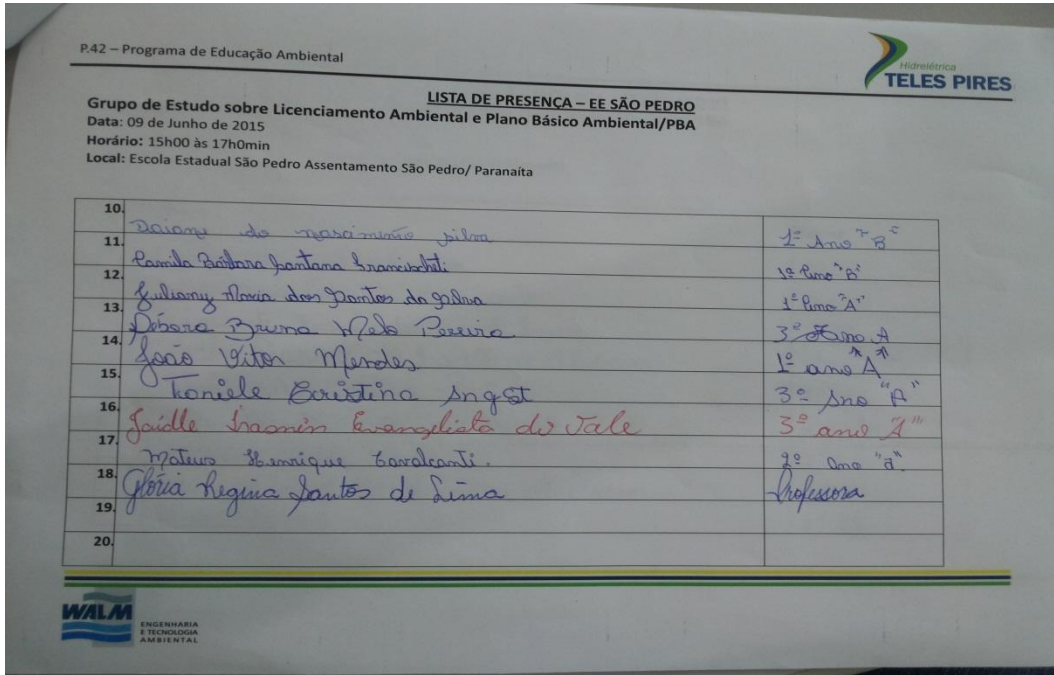 P.42 – Programa de Educação Ambiental
Hidrelétrica
TELES PIRES
LISTA DE PRESENÇA – EE SÃO PEDRO
Grupo de Estudo sobre Licenciamento Ambiental e Plano Básico Ambiental/PBA
Data: 09 de Junho de 2015
Horário: 15h00 às 17h0min
Local: Escola Estadual São Pedro Assentamento São Pedro/ Paranaíta
10. Daiane do nascimento silva 1º Ano "B"
11. Camila Bárbara Santana 1º Ano "B"
12. Juliany Maria dos Santos da Silva 1º Ano "A"
13. Débora Bruna Melo Pereira 3º Ano A
14. João Vitor Mendes 1º ano "A"
15. Cristina Angst 3º Ano "A"
16. Evangelista do Vale 3º ano "A"
17. Mateus Henrique Cavalcanti. 2º Ano "a"
18. Glória Regina Santos de Lima Professora
19.
20.
WALM
ENGENHARIA
E TECNOLOGIA
AMBIENTAL